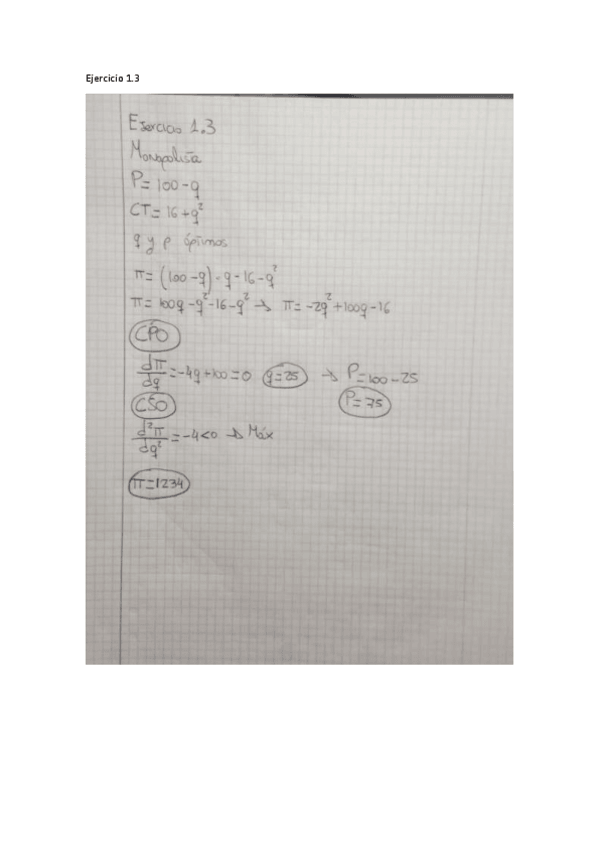 Ejercicio 1.3
Ejercicio 1.3
Monopolista
P= 100-q
CT= 16+q²
q y p óptimos
π= (100-q)·q-16-q²
π= 100q-q²-16-q² → π= -2q²+100q-16
CPO
dπ/dq = -4q+100=0 q=25 → P=100-25
CSO P=75
d²π/dq² = -4<0 → Máx
π=1234